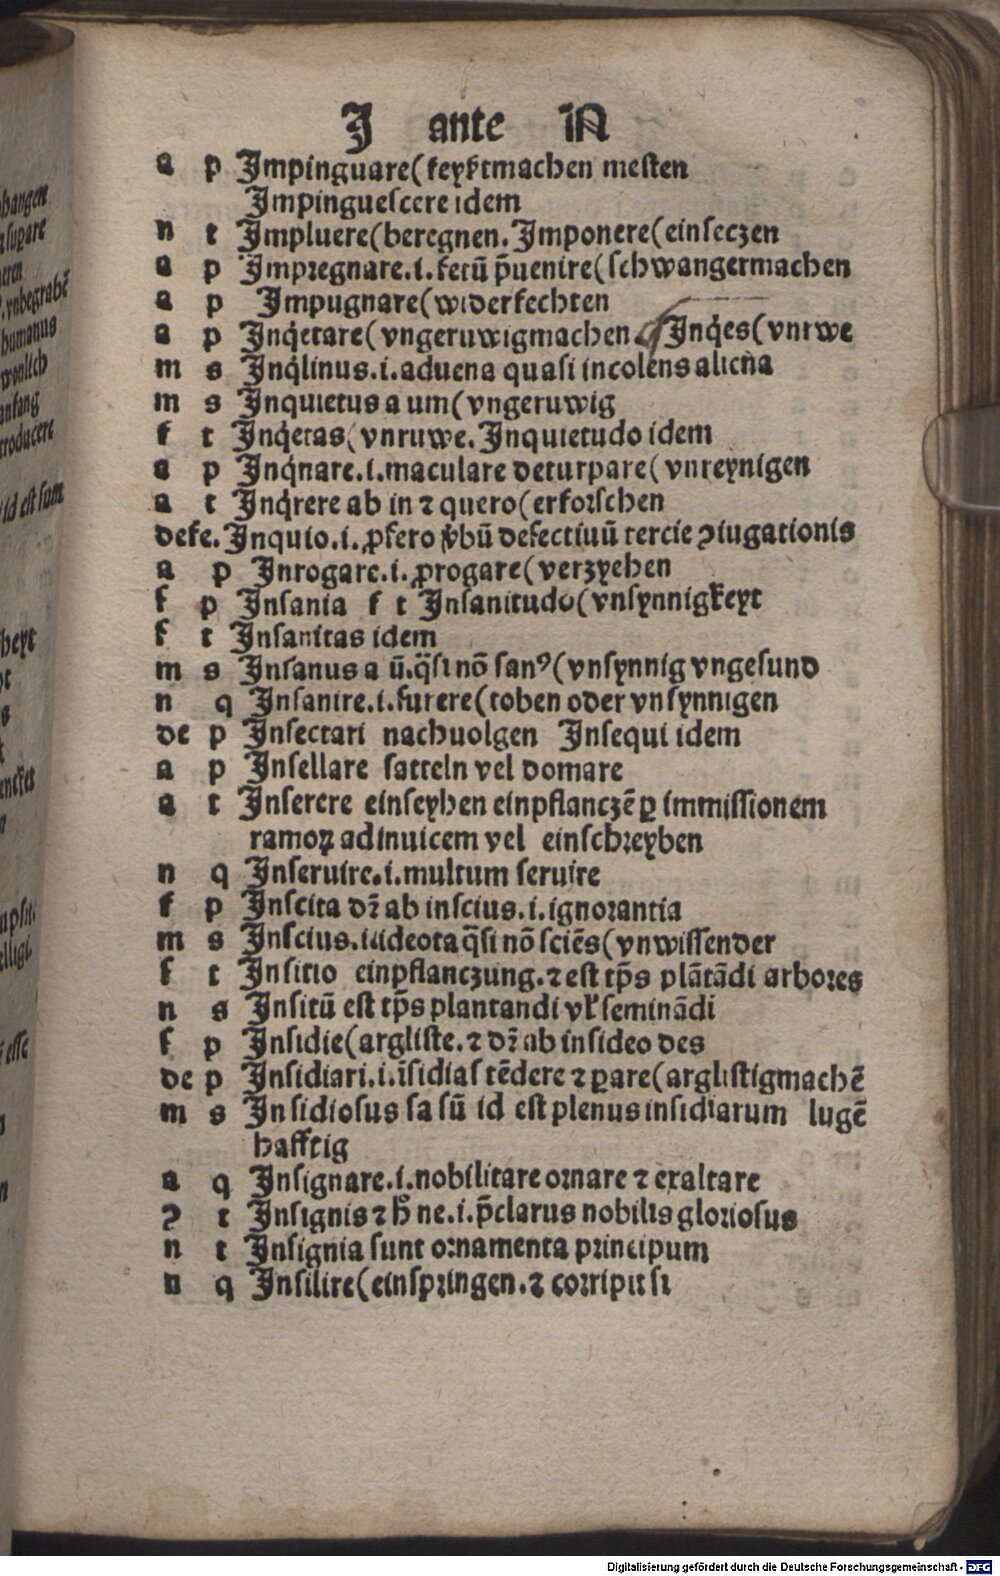 J ante iN
a p Jmpinguare(feyßtmachen mesten
Jmpinguescere idem
n t Jmpluere(beregnen. Jmponere(einseczen
a p Jmpregnare.i.fetū p̄uenire(schwangermachen
a p Jmpugnare(widerfechten
a p Jnq̇etare(vngeruwigmachen Jnq̇es(vnrwe
m s Jnq̇linus.i.aduena quasi incolens aliena
m s Jnquietus a um(vngeruwig
f t Jnq̇etas(vnruwe. Jnquietudo idem
a p Jnq̇nare.i.maculare deturpare(vnreynigen
a t Jnq̇rere ab in ⁊ quero(erforschen
defe. Jnquio.i.ꝓfero v̇bū defectiuū tercie ꝯiugationis
a p Jnrogare.i.ꝓrogare(verzyehen
f p Jnsania f t Jnsanitudo(vnsynnigkeyt
f t Jnsanitas idem
m s Jnsanus a ū.q̄si nō sanꝰ(vnsynnig vngesund
n q Jnsanire.i.furere(toben oder vnsynnigen
de p Jnsectari nachuolgen Jnsequi idem
a p Jnsellare satteln vel domare
a t Jnserere einseyhen einpflanczē ꝑ immissionem
ramoꝝ adinuicem vel einschreyben
n q Jnseruire.i.multum seruire
f p Jnscita dr̄ ab inscius.i.ignorantia
m s Jnscius.i.ideota q̄si nō sciēs(vnwissender
f t Jnsitio einpflanczung.⁊ est tp̄s plātādi arbores
n s Jnsitū est tp̄s plantandi vł seminādi
f p Jnsidie(argliste.⁊ dr̄ ab insideo des
de p Jnsidiari.i.īsidias tēdere ⁊ ꝑare(arglistigmachē
m s Jnsidiosus sa sū id est plenus insidiarum lugē
hafftig
a q Jnsignare.i.nobilitare ornare ⁊ exaltare
ꝯ t Jnsignis ⁊ h̊ ne.i.p̄clarus nobilis gloriosus
n t Jnsignia sunt ornamenta principum
n q Jnsilire(einspringen.⁊ corripit si
hangen
supare
vnbegrabē
humanus
wonlich
anfang
roducere
id est sum
heyt
esse
Digitalisierung gefördert durch die Deutsche Forschungsgemeinschaft - DFG